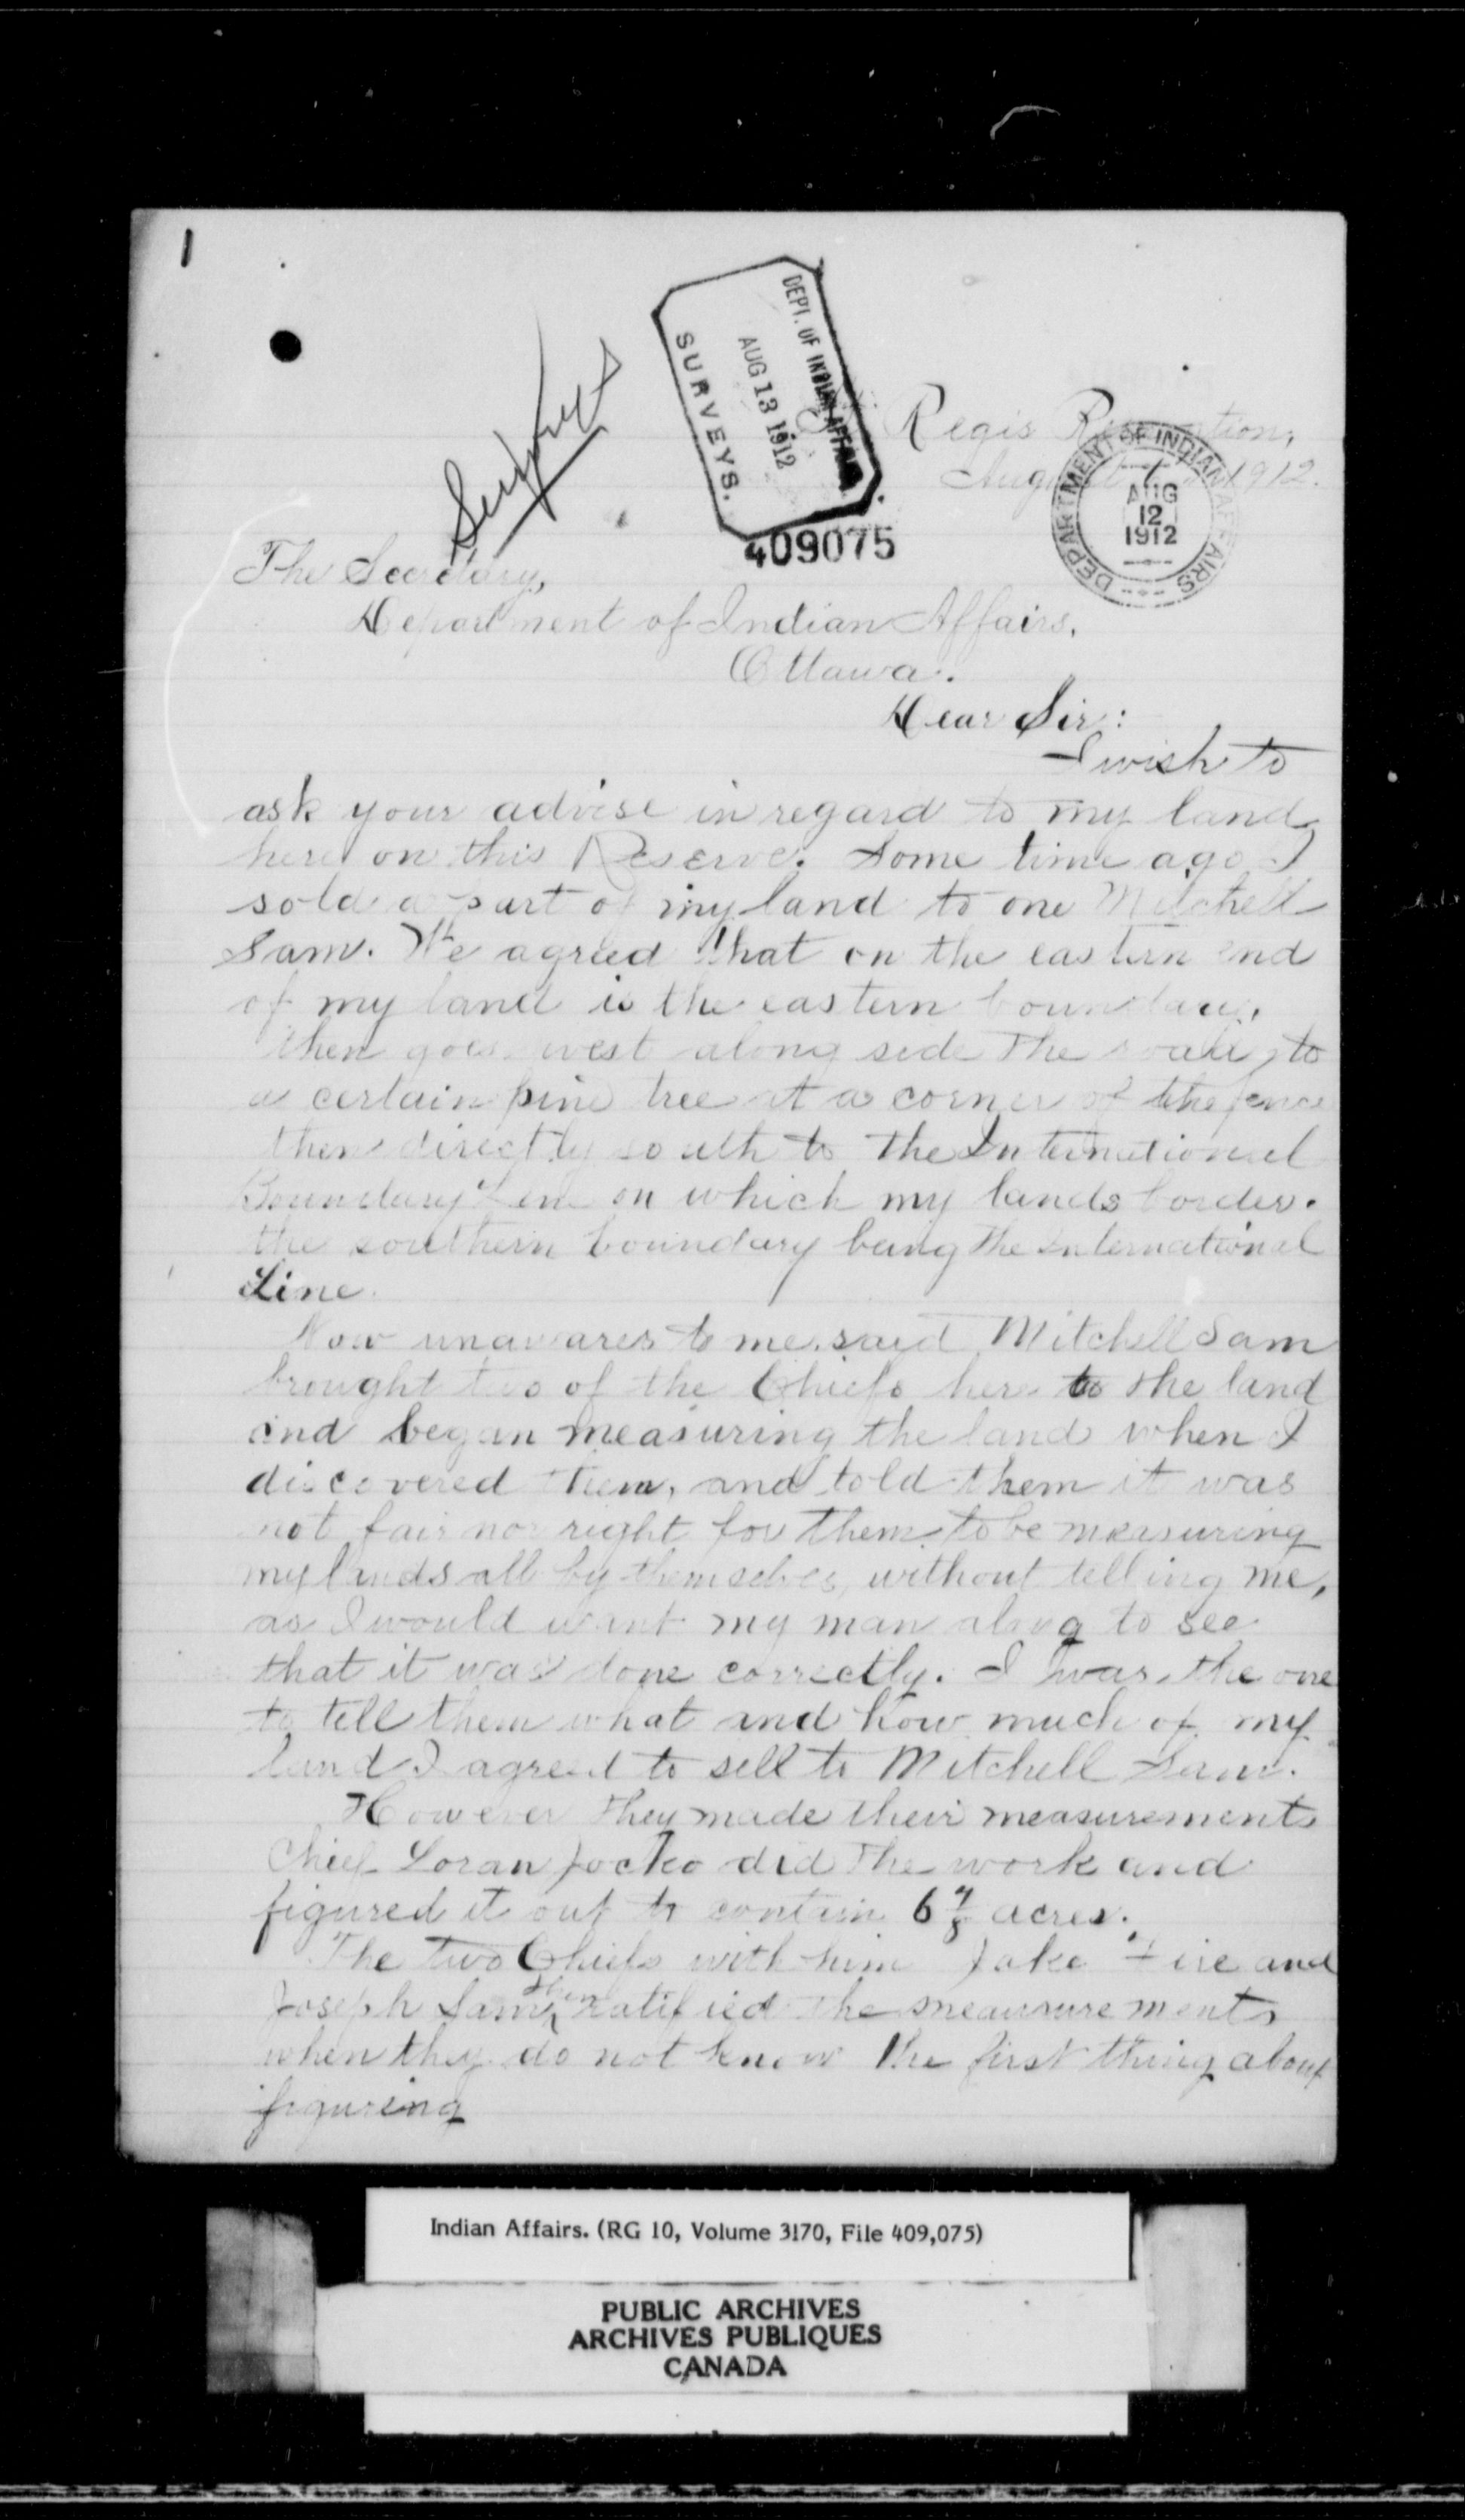 1
Surveys
DEPT. OF INDIAN AFFAIRS
AUG 13 1912
SURVEYS.
409075
Regis Reservation,
August 1912.
DEPARTMENT OF INDIAN AFFAIRS
AUG
12
1912
The Secretary,
Department of Indian Affairs,
Ottawa.
Dear Sir:
I wish to
ask your advise in regard to my land
here on this Reserve. Some time ago I
sold a part of my land to one Mitchell
Sam. We agreed that on the eastern end
of my land is the eastern boundary,
then goes west along side the road, to
a certain pine tree at a corner of the fence
then directly south to the International
Boundary Line on which my lands border.
the southern boundary being the International
Line.
Now unawares to me, said Mitchell Sam
brought two of the Chiefs here to the land
and began measuring the land when I
discovered them, and told them it was
not fair nor right for them to be measuring
my lands all by themselves, without telling me,
as I would want my man along to see
that it was done correctly. I was the one
to tell them what and how much of my
land I agreed to sell to Mitchell Sam.
However they made their measurements
Chief Loran Jocko did the work and
figured it out to contain 6 7/8 acres.
The two Chiefs with him Jake Fire and
Joseph Sam, then ratified the meausurements
when they do not know the first thing about
figuring
Indian Affairs. (RG 10, Volume 3170, File 409,075)
PUBLIC ARCHIVES
ARCHIVES PUBLIQUES
CANADA